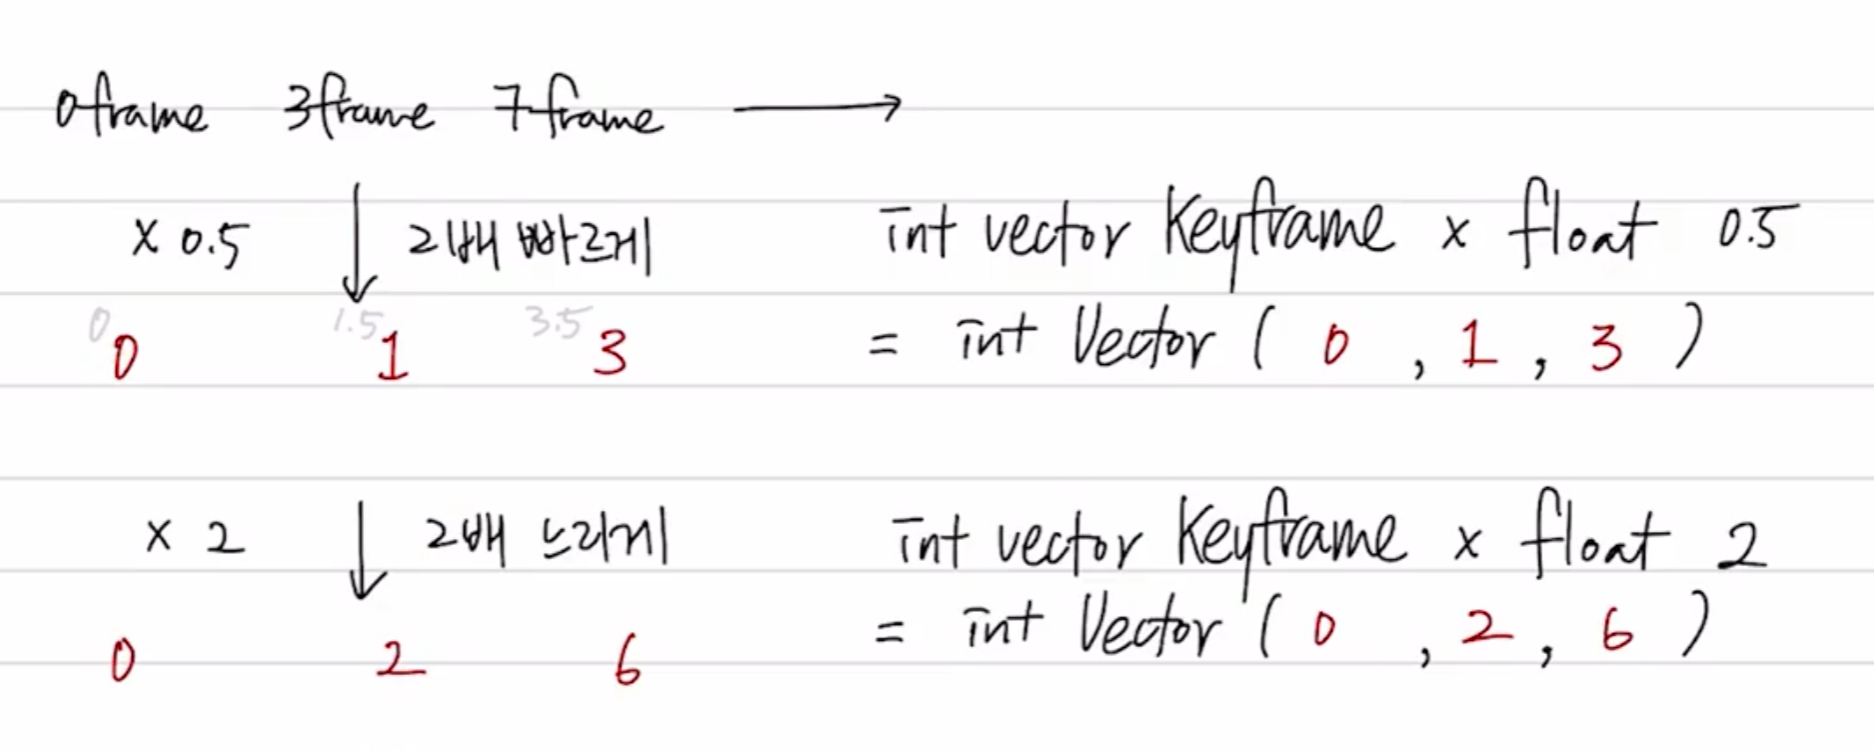 0frame 3frame 7frame →
x 0.5 ↓ 2배 빠르게 int vector Keyframe x float 0.5
0 0 1.5 1 3.5 3 = int Vector ( 0 , 1 , 3 )
x 2 ↓ 2배 느리게 int vector Keyframe x float 2
0 2 6 = int Vector ( 0 , 2 , 6 )